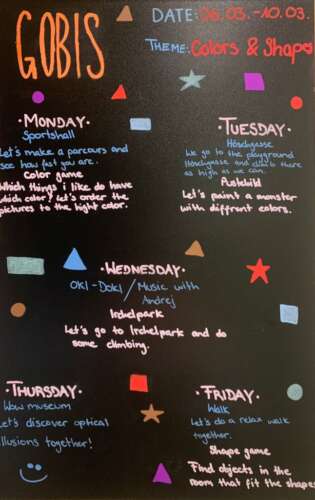 GOBIS
DATE: 06.03.-10.03.
THEME: Colors & Shapes
·MONDAY·
Sportshall
Let's make a parcours and
see how fast you are.
Color game
Which things i like do have
which color? Let's order the
pictures to the right color.
·TUESDAY·
Höschgasse
We go to the playground
Höschgasse and climb there
as high as we can.
Pustebild
Let's paint a monster
with diffrent colors.
·WEDNESDAY·
OKI-DOKI / Music with
Andrej
Irchelpark
Let's go to Irchelpark and do
some climbing.
·THURSDAY·
Wow museum
Let's discover optical
illusions together!
·FRIDAY·
Walk
Let's do a relax walk
together.
Shape game
Find objects in the
room that fit the shapes